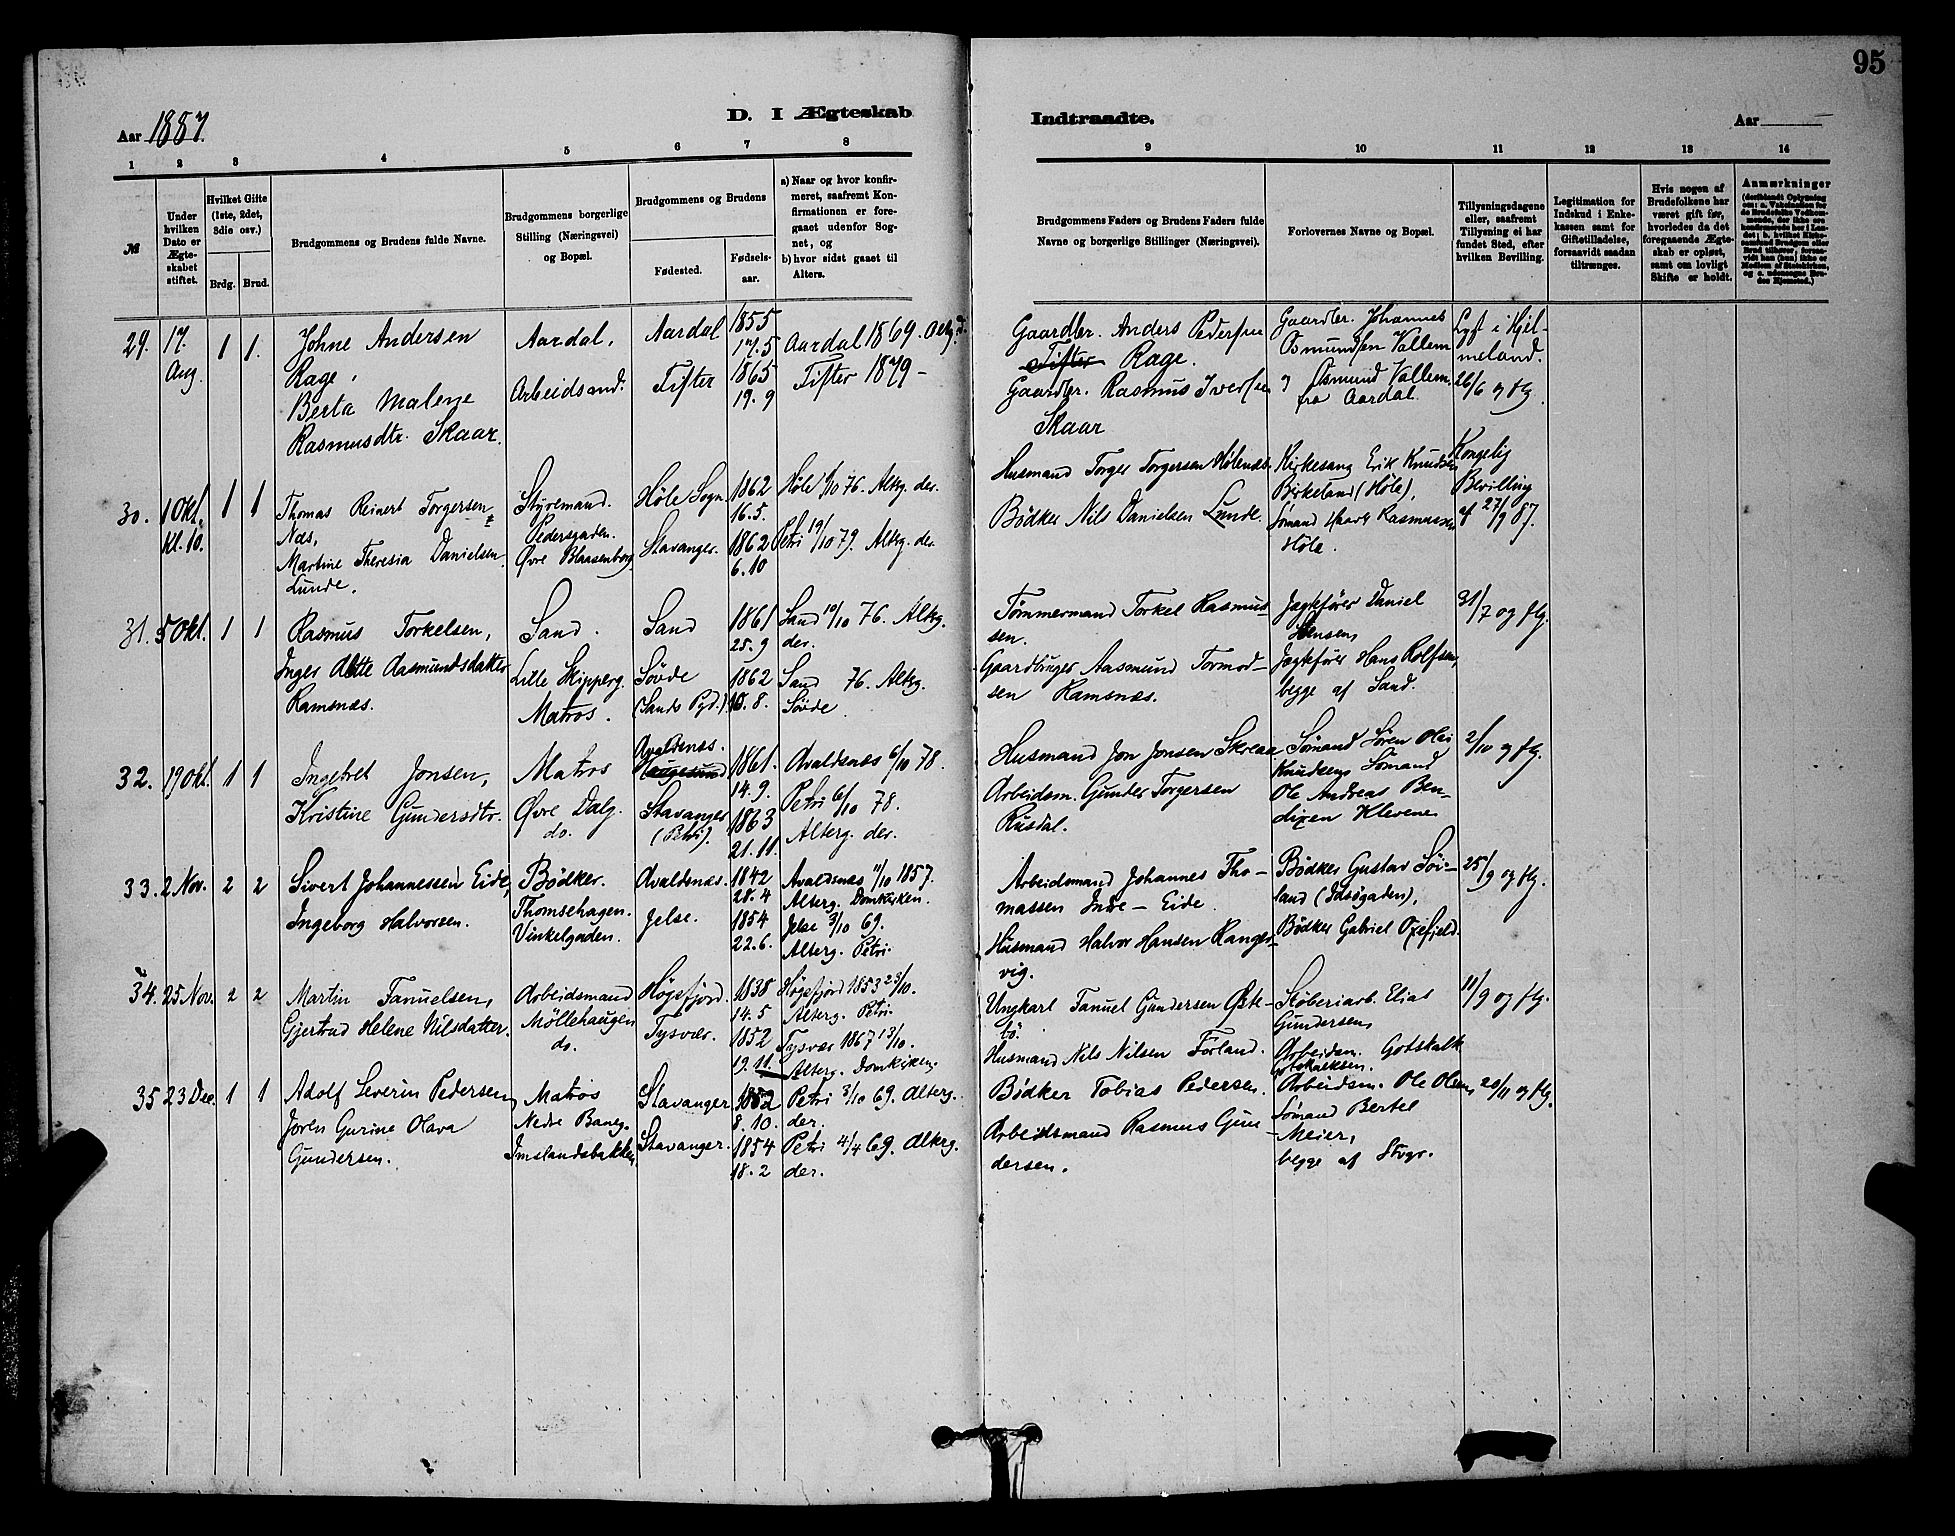 95
Aar 1887.
D. I Ægteskab
Indtraadte.
Aar
1 2 3 4 5 6 7 8
9 10 11 12 13 14
№
Under hvilken Dato er Ægteskabet stiftet.
Hvilket Gifte (1ste, 2det, 3die osv.)
Brdg. Brud.
Brudgommens og Brudens fulde Navne.
Brudgommens borgerlige Stilling (Næringsvei) og Bopæl.
Brudgommens og Brudens
Fødested.
Fødselsaar.
a) Naar og hvor konfirmeret, saafremt Konfirmationen er foregaaet udenfor Sognet, og
b) hvor sidst gaaet til Alters.
Brudgommens Faders og Brudens Faders fulde Navne og borgerlige Stillinger (Næringsvei).
Forlovernes Navne og Bopæl.
Tillysningsdagene eller, saafremt Tillysning ei har fundet Sted, efter hvilken Bevilling.
Legitimation for Indskud i Enkekassen samt for Giftetilladelse, forsaavidt saadan tiltrænges.
Hvis nogen af Brudefolkene har været gift før, hvorledes da det foregaaende Ægteskab er opløst, samt om lovligt Skifte er holdt.
Anmærkninger
29. 17. Aug. 1 1.
Johne Andersen
Rage,
Berta Malene
Rasmusdtr. Skaar.
Aardal,
Arbeidsmd.
Aardal
Fister
1855
17.5
1865
19.9
Aardal 1869.
Fister 1879 –
Gaardbr. Anders Pedersen
Fister Rage.
Gaardbr. Rasmus Iversen
Skaar
Gaardbr. Johannes
Osmundsen Vallem
og Osmund Vallem,
fra Aardal.
Lyst i Hjel-
meland.
26/6 og flg.
30. 1 Okt. Kl. 10. 1 1
Thomas Reinert Torgersen
Næs,
Martine Theresia Danielsen
Lunde.
Styremand.
Pedersgaden.
Øvre Blaasenborg
Høle Sogn.
Stavanger.
1862
16.5.
1862
6.10
Høle /10 76. Altrg. der.
Petri 19/10 79. Altrg. der.
Husmand Torger Torgersen Hølenæs
Bødker Nils Danielsen Lunde.
Kirkesang. Erik Knudsen
Birkeland (Høle),
Sømand Rasmussen
Høle.
Kongelig
Bevilling
af 27/9 87.
31. 5 Okt. 1 1
Rasmus Torkelsen,
Inger Aasmundsdatter
Ramsnæs.
Sand.
Lille Skipperg.
Matros.
Sand
Søvde
(Sands Pgd.)
1861
25.9
1862
10.8.
Sand 10/10 76. Altrg.
der.
Sand 76. Altrg.
Søvde
Tømmermand Torkel Rasmus-
sen.
Gaardbruger Aasmund Tormod-
sen Ramsnæs.
Jagtfører Daniel
Hansen,
Jagtfører Hans Rolfsen,
begge af Sand.
31/7 og flg.
32. 19 Okt. 1 1
Ingebret Jonsen,
Kristine Gundersdtr.
Matros
Øvre Dalg.
do.
Avaldsnæs.
Haugesund
Stavanger
(Petri).
1861.
14.9.
1863
21.11.
Avaldsnæs 6/10 78.
Petri 6/10 78.
Alterg. der.
Husmand Jon Jonsen Skreaa
Arbeidsm. Gunder Torgersen
Rusdal.
Sømand Søren Olai
Knudsen, Sømand
Ole Andreas Ben-
dixen Klevene
2/10 og flg.
33. 2 Nov. 2 2
Sivert Johannessen Eide,
Ingeborg Halvorsen.
Bødker.
Thomsehagen.
Vinkelgaden.
Avaldsnæs.
Jelse.
1842
28.4
1854
22.6.
Avaldsnæs 11/10 1857.
Alterg. Domkirken.
Jelse 3/10 69.
Alterg. Petri
Arbeidsmand Johannes Tho-
massen Indre – Eide.
Husmand Halvor Hansen Ranger-
vig.
Bødker Gustav Søi-
land (Idsøgaden),
Bødker Gabriel Oxefjeld.
25/9 og flg.
34. 25 Nov. 2 2
Martin Tanuelsen,
Gjertrud Helene Nilsdatter.
Arbeidsmand
Møllehaugen
do.
Høgsfjord.
Tysvær.
1838
14.5
1852
9.11.
Høgsfjord 1853 23/10.
Alterg. Petri
Tysvær 1867 13/10.
Alterg. Domkirken.
Ungkarl Tanuel Gundersen Øste-
bø.
Husmand Nils Nilsen Førland.
Støberiarb. Elias
Gundersen,
Arbeidsm. Gotskalk
Gotskalksen.
11/9 og flg.
35 23 Dec. 1 1
Adolf Severin Pedersen,
Joren Gurine Olava
Gundersen.
Matros
Nedre Baneg.
Imslandsbakken
Stavanger
Stavanger.
1852
8.10.
1854
18.2
Petri 3/10 69. Alterg.
der.
Petri 4/4 69. Alterg.
der.
Bødker Tobias Pedersen.
Arbeidsmand Rasmus Gun-
dersen.
Arbeidsm. Ole Olsen,
Sømand Bertel
Meier,
begge af Stvgr.
20/11 og flg.